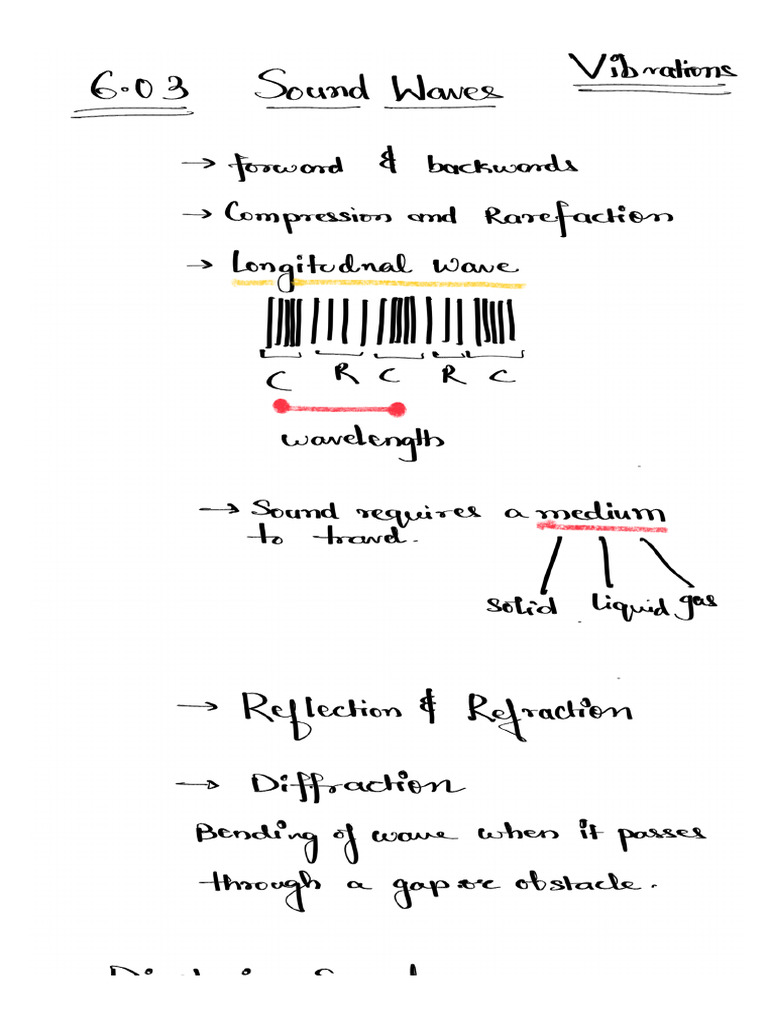 6.03 Sound Waves Vibrations
→ forword & backwords
→ Compression and Rarefaction
→ Longitudnal wave
C R C R C
wavelength
→ Sound requires a medium
to travel.
solid liquid gas
→ Reflection & Refraction
→ Diffraction
Bending of wave when it passes
through a gap or obstacle.